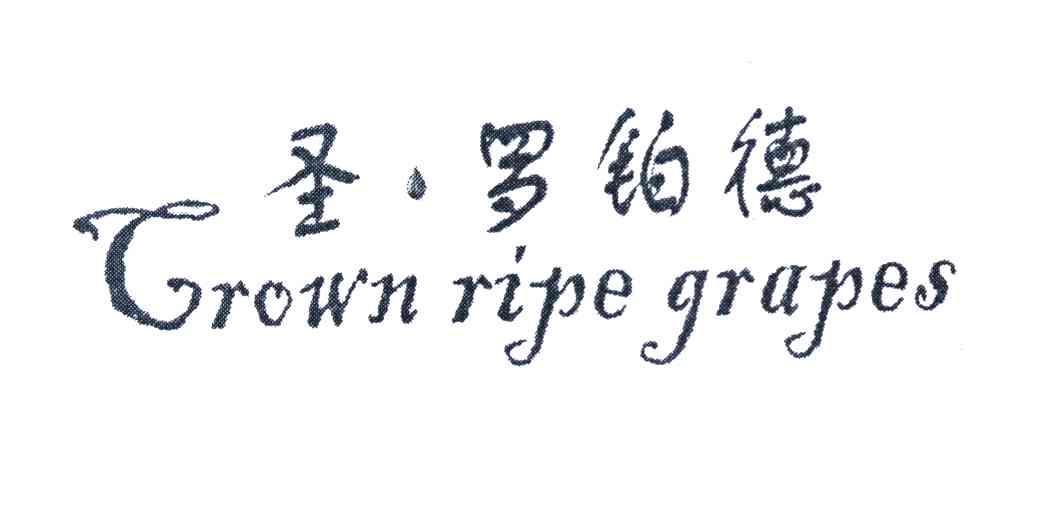 圣·罗铂德
Grown ripe grapes